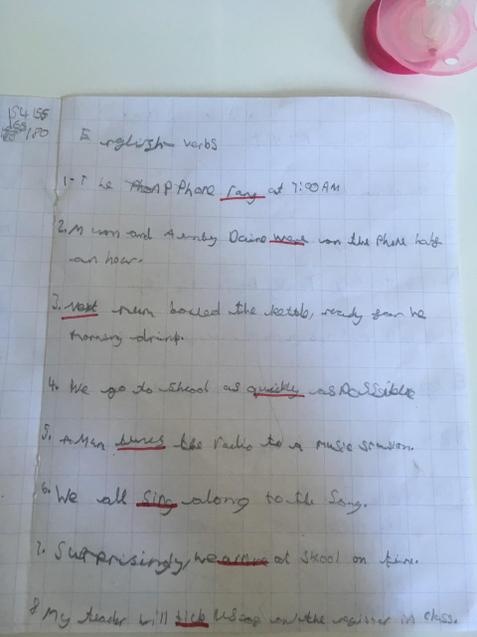 54 155
180
English verbs
1-The Phone rang at 7:00AM
2. Mum and Aunty Daine were on the Phone half
an hour.
3. Next mum boiled the kettle, ready for he
morning drink.
4. We go to Skool as quickly as Possible
5. A Man tunes the radio to a music station.
6. We all sing along to the Song.
7. Surprisingly, we arrive at Skool on time.
8 My teacher will tick us on the register in class.